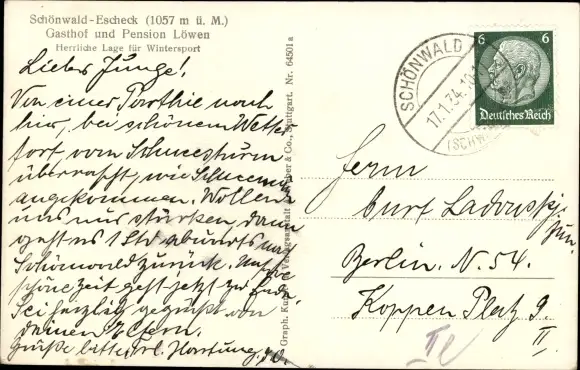 Schönwald-Escheck (1057 m ü. M.)
Gasthof und Pension Löwen
Herrliche Lage für Wintersport
Lieber Junge!
Von einer Parthie nach
hier, bei schönem Wetter
fort vom Schneesturm
überrascht, wie Schneem.
angekommen. Wollen
uns nur stärken dann
geht es 1 Std abwärts nach
Schönwald zurück. Unsre
schöne Zeit geht jetzt zu Ende.
Sei herzlich gegrüßt von
deinen Eltern.
Grüße bitte Frl. Hartung
Graph. Verlagsanstalt & Co., Stuttgart. Nr. 64501a
SCHÖNWALD
17.1.34.10
(SCHW
6 6
Deutsches Reich
Herrn
Curt Ladowski
jun.
Berlin. N. 54.
Koppen Platz 9.
II